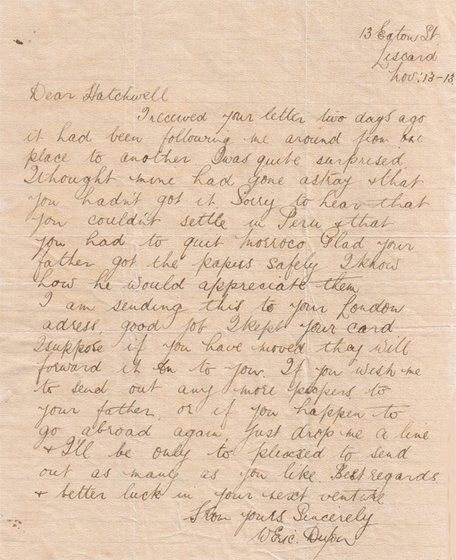 13 Eaton St
Liscard
Nov: 13-13
Dear Hatchwell
I received your letter two days ago
it had been following me around from one
place to another I was quite surprised
I thought mine had gone astray & that
you hadn't got it Sorry to hear that
you couldn't settle in Peru & that
you had to quit Morroco Glad your
father got the papers safely I know
how he would appreciate them
I am sending this to your London
adress, good job I kept your card
I suppose if you have moved they will
forward it on to you. If you wish me
to send out any more papers to
your father, or if you happen to
go abroad again, just drop me a line
& I'll be only to pleased to send
out as many as you like Best regards
& better luck in your next venture
From yours Sincerely
W Eric